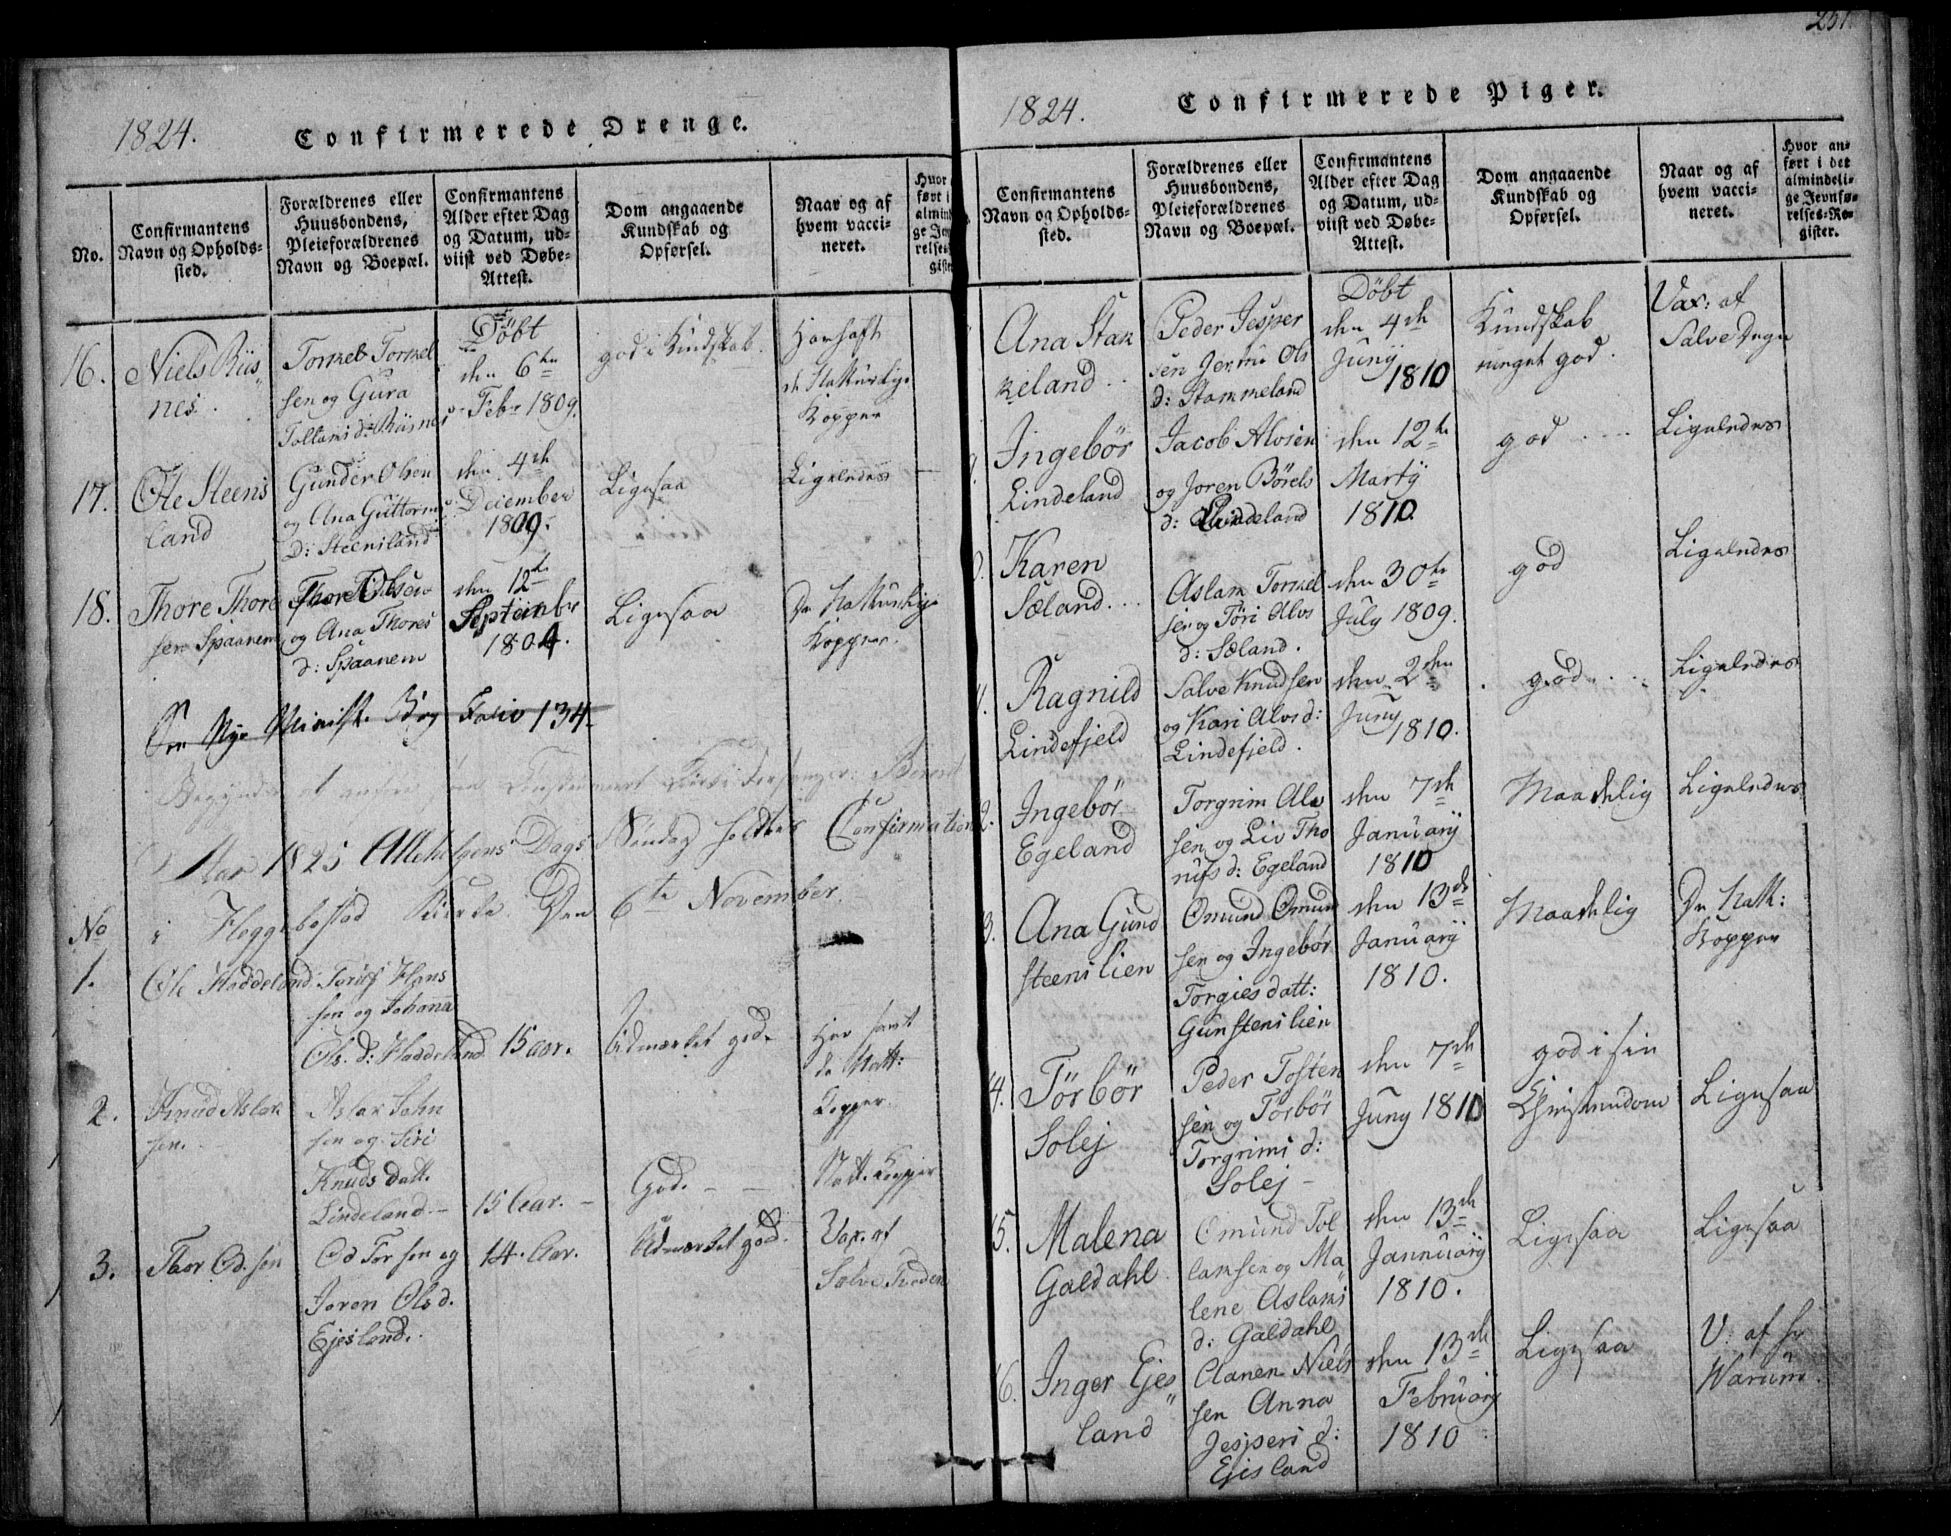 1824. Confirmerede Drenge.
No.
Confirmantens
Navn og Opholds-
sted.
Forældrenes eller
Huusbondens,
Pleieforældrenes
Navn og Boepæl.
Confirmantens
Alder efter Dag
og Datum, ud-
viist ved Døbe-
Attest.
Dom angaaende
Kundskab og
Opførsel.
Naar og af
hvem vacci-
neret.
Hvor
ført i
almind
ge Je
relses
giste
16.
Niels Riis„
nes.
Tormel Tormel
sen og Gura
Tollaxi d: Riisnes
Döbt
den 6te
Febr 1809.
god i Kundskab.
Har haft
de Naturlige
Kopper
17.
Ole Steens
land
Gunder Olsen
og Ana Guttorms
D: Steensland
den 4de
December
1809.
Ligesaa
Ligeledes
18.
Thore Thore
sen Spaanem
Thore Olsen
og Ana Thores
d: Spaanem
den 12te
September
1804.
Ligesaa
De Naturlige
Kopper.
See Nye Minist. Bog Folio 134
Aar 1825 Allehelgens Dags Søndag holdtes Confirmation
i Heggebostad Kirke Den 6te November.
No
1.
Ole Haddeland
Torgis Hans
sen og Johanna
Ols. d: Haddeland
15 aar.
Udmærket god.
Har havt
de Natt:
Kopper.
2.
Knud Aslak
sen.
Aslak John
sen og Siri
Knuds Datt.
Lindeland.
15 Aar.
God.
Natt. Kopper
3.
Thor Od. sen
Od Tor sen og
Joren Ols d.
Ejesland.
14. Aar.
Udmærket god.
Vax. af
Salve Tveden
251.
1824. Confirmerede Piger.
Confirmantens
Navn og Opholds-
sted.
Forældrenes eller
Huusbondens,
Pleieforældrenes
Navn og Boepæl.
Confirmantens
Alder efter Dag
og Datum, ud-
viist ved Døbe-
Attest.
Dom angaaende
Kundskab og
Opførsel.
Naar og af
hvem vacci-
neret.
Hvor an-
ført i det
almindeli-
ge Jevnfø-
relses-Re-
gister.
Ana Stak
keland
Peder Jesper
sen Jerni Ols
d: Stammeland
Döbt
den 4de
Junij
1810
Kundskab
meget god.
Vax: af
Salve Degn
Ingebör
Lindeland
Jacob Alvsen
og Joren Börels
d: Lindeland
den 12te
Martij
1810.
god
Ligeledes
Karen
Sæland.
Aslam Tormel
sen og Töri Alvs
d: Sæland.
den 30te
July 1809.
god
Ligeledes
Ragnild
Lindefjeld
Salve Knudsen
og Kari Alvs d:
Lindefjeld.
den 2den
Juny
1810.
god
Ligeledes
2.
Ingebör
Egeland
Torgrim Alv
sen og Liv Tho
rufs d: Egeland
den 7de
Januarij
1810
Maadelig
Ligeledes
3.
Ana Gund
steenslien
Omund Omund
sen og Ingebör
Torgies datt:
Gunstenslien
den 13de
Januarij
1810.
Maadelig
De Natt:
Kopper
4.
Törbör
Solej
Peder Tosten
sen og Törbör
Torgrimi d:
Solej
den 7de
Juny 1810
god i sin
Christendom
Ligesaa
5.
Malena
Galdahl
Omund Tol
laxsen og Ma
lene Aslaksi
d: Galdahl
den 13de
Jannuarij
1810.
Ligesaa
Ligesaa
6.
Inger Ejes„
land
Clanen Niels
sen Anna
Jesperi d:
Ejesland
den 13de
Februarij
1810
Ligesaa
V: af hr
Warum.